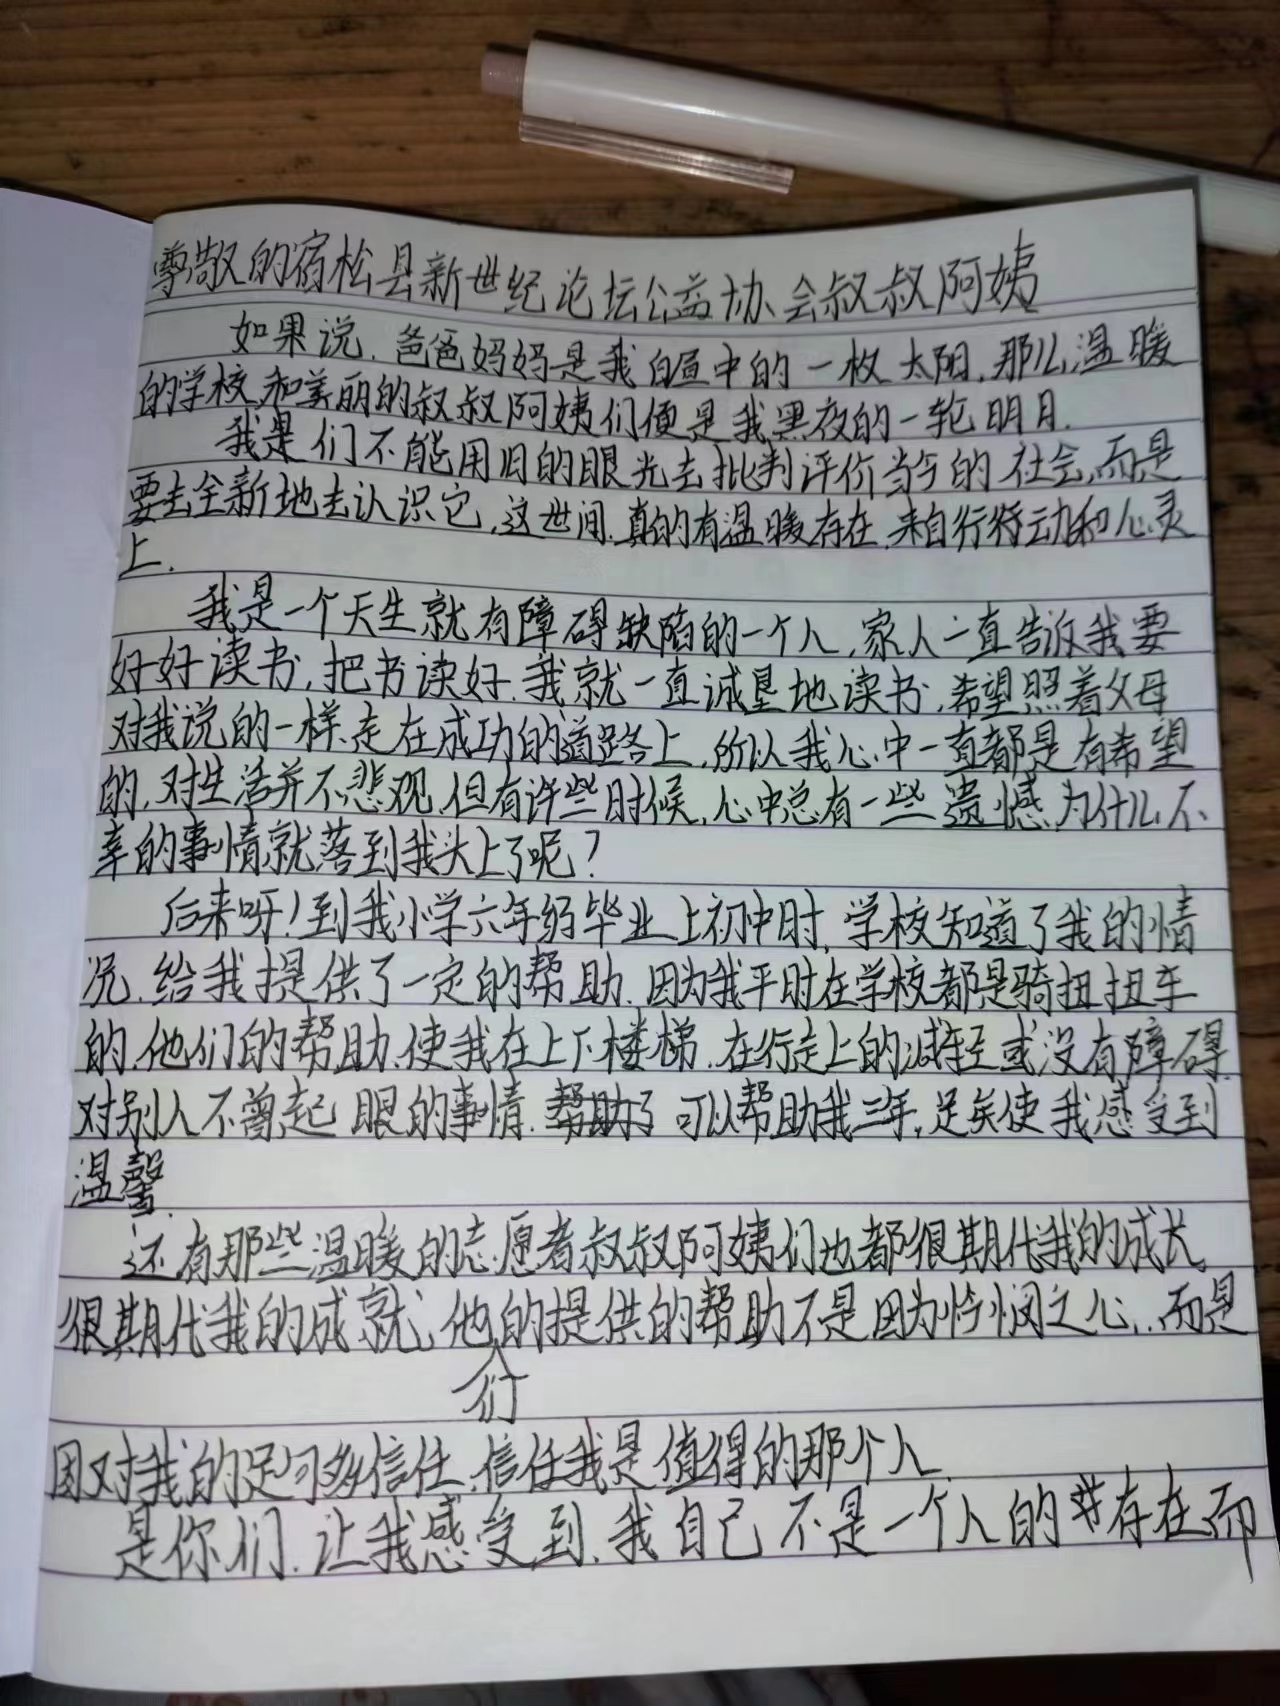 尊敬的宿松县新世纪论坛公益协会叔叔阿姨
如果说,爸爸妈妈是我白昼中的一枚太阳,那么,温暖
的学校和美丽的叔叔阿姨们便是我黑夜的一轮明月.
我是们不能用旧的眼光去批判评价当今的社会,而是
要去全新地去认识它,这世间,真的有温暖存在,来自行动和心灵
上.
我是一个天生就有障碍缺陷的一个人,家人一直告诉我要
好好读书,把书读好,我就一直诚垦地读书,希望照着父母
对我说的一样,走在成功的道路上,所以我心中一直都是有希望
的,对生活并不悲观,但有许些时候,心中总有一些遗憾,为什么不
幸的事情就落到我头上了呢?
后来呀!到我小学六年级毕业上初中时,学校知道了我的情
况,给我提供了一定的帮助,因为我平时在学校都是骑扭扭车
的,他们的帮助,使我在上下楼梯,在行走上的减轻或没有障碍,
对别人不曾起眼的事情,可以帮助我三年,足矣使我感受到
温馨.
还有那些温暖的志愿者叔叔阿姨们也都很期代我的成长,
很期代我的成就,他们的提供的帮助不是因为怜悯之心,.而是
因对我的足够多信任,信任我是值得的那个人.
是你们,让我感受到,我自己不是一个人的存在而